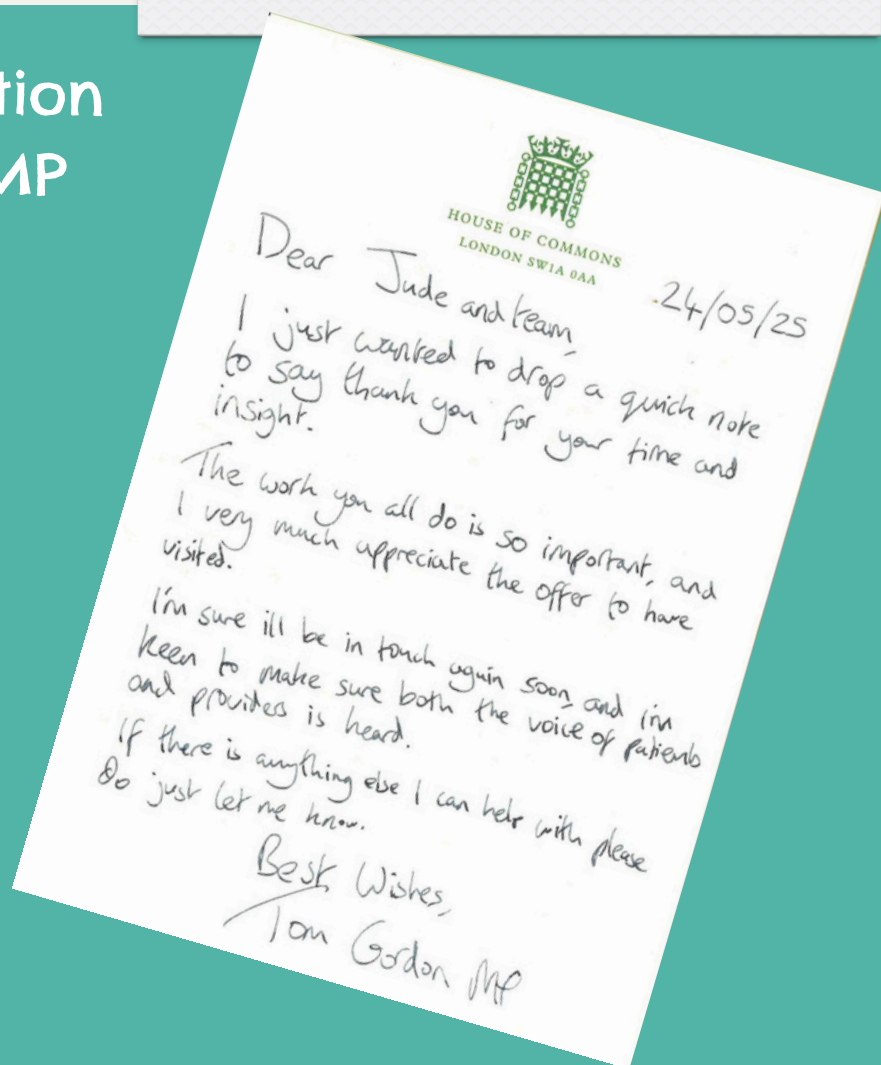 tion
MP
HOUSE OF COMMONS
LONDON SW1A 0AA
24/05/25
Dear Jude and team,
I just wanted to drop a quick note
to say thank you for your time and
insight.
The work you all do is so important, and
I very much appreciate the offer to have
visited.
I'm sure ill be in touch again soon, and i'm
keen to make sure both the voice of patients
and providers is heard.
If there is anything else I can help with please
do just let me know.
Best Wishes,
Tom Gordon MP